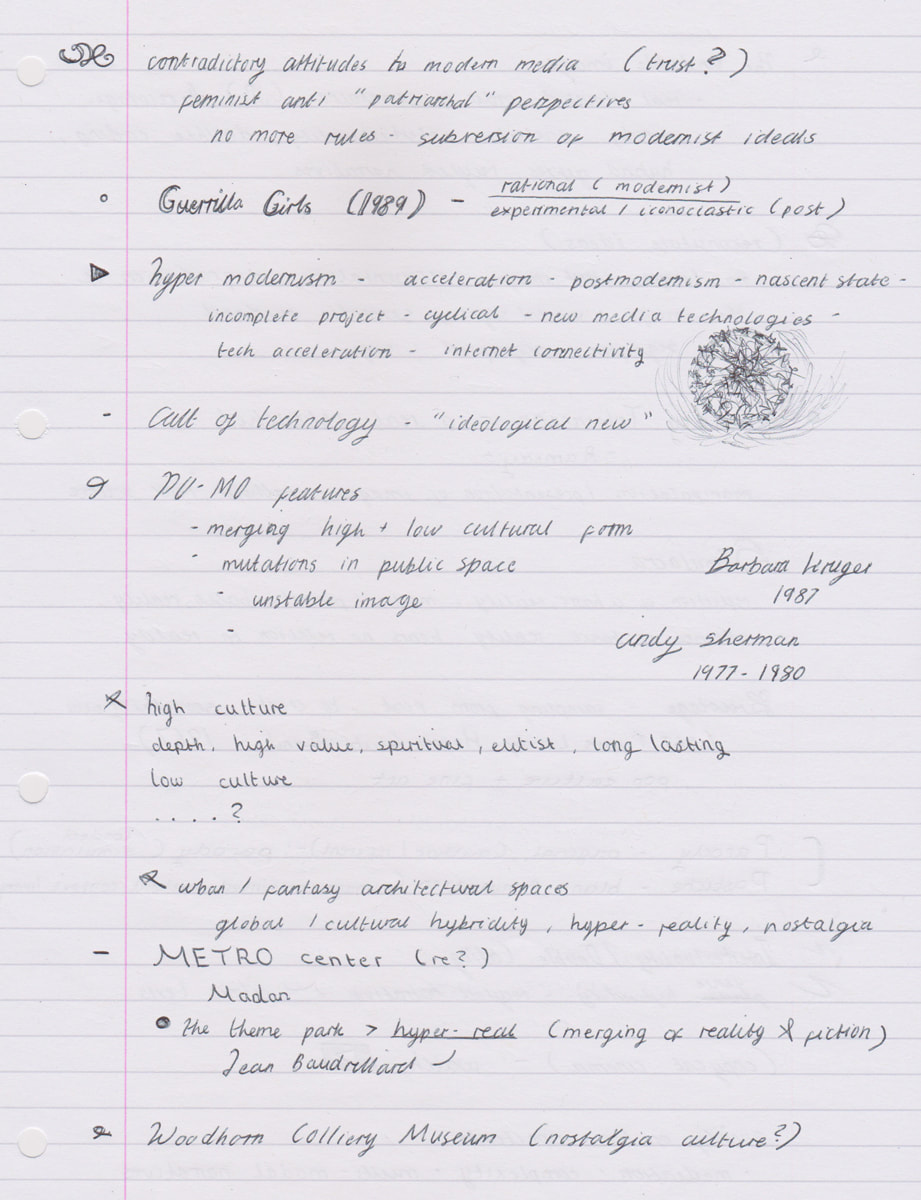 contradictory attitudes to modern media (trust?)
feminist anti "patriarchal" perspectives
no more rules - subversion of modernist ideals
Guerrilla Girls (1989) - rational (modernist)
experimental / iconoclastic (post)
hyper modernism - acceleration - postmodernism - nascent state -
incomplete project - cyclical - new media technologies -
tech acceleration - internet connectivity
- Cult of technology - "ideological new"
PO-MO features
- merging high + low cultural form
- mutations in public space
- unstable image
-
Barbara Kruger
1987
Cindy Sherman
1977 - 1980
high culture
depth, high value, spiritual, elitist, long lasting
low culture
. . . . ?
urban / fantasy architectural spaces
global / cultural hybridity, hyper-reality, nostalgia
- METRO center (re?)
Madan
• the theme park > hyper-real (merging of reality & fiction)
Jean Baudrillard
Woodhorn Colliery Museum (nostalgia culture?)